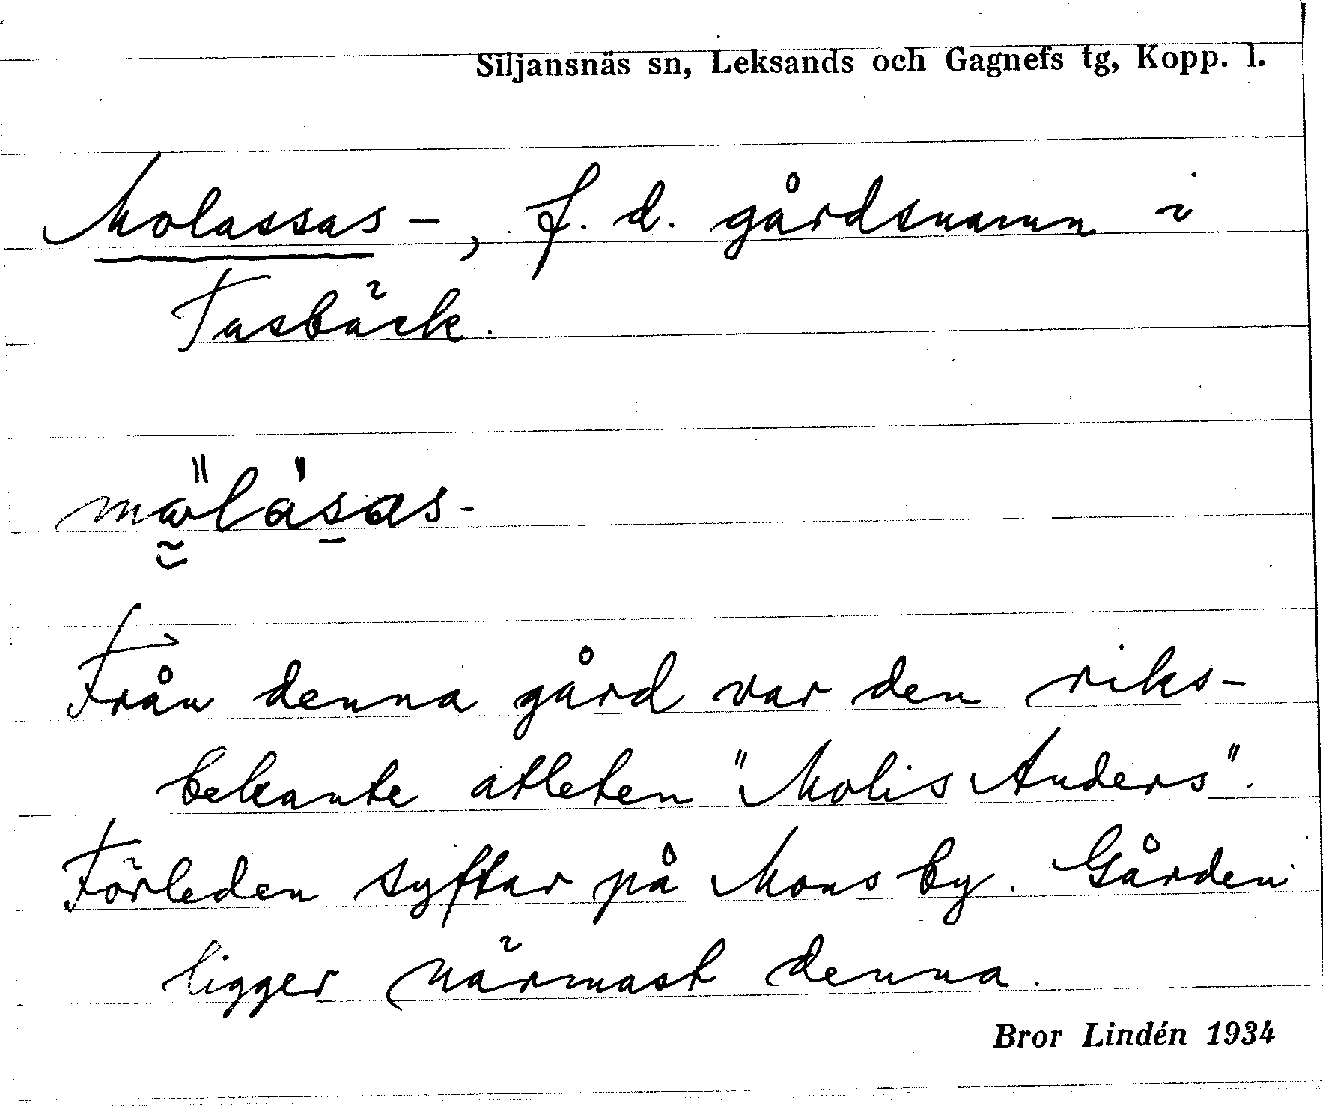 Siljansnäs sn, Leksands och Gagnefs tg, Kopp. l.
Molassas-, f. d. gårdsnamn i
Tasbäck.
Från denna gård var den riks-
bekante atleten "Molis Anders".
Förleden syftar på Mons by. Gården
ligger närmast denna.
Bror Lindén 1934